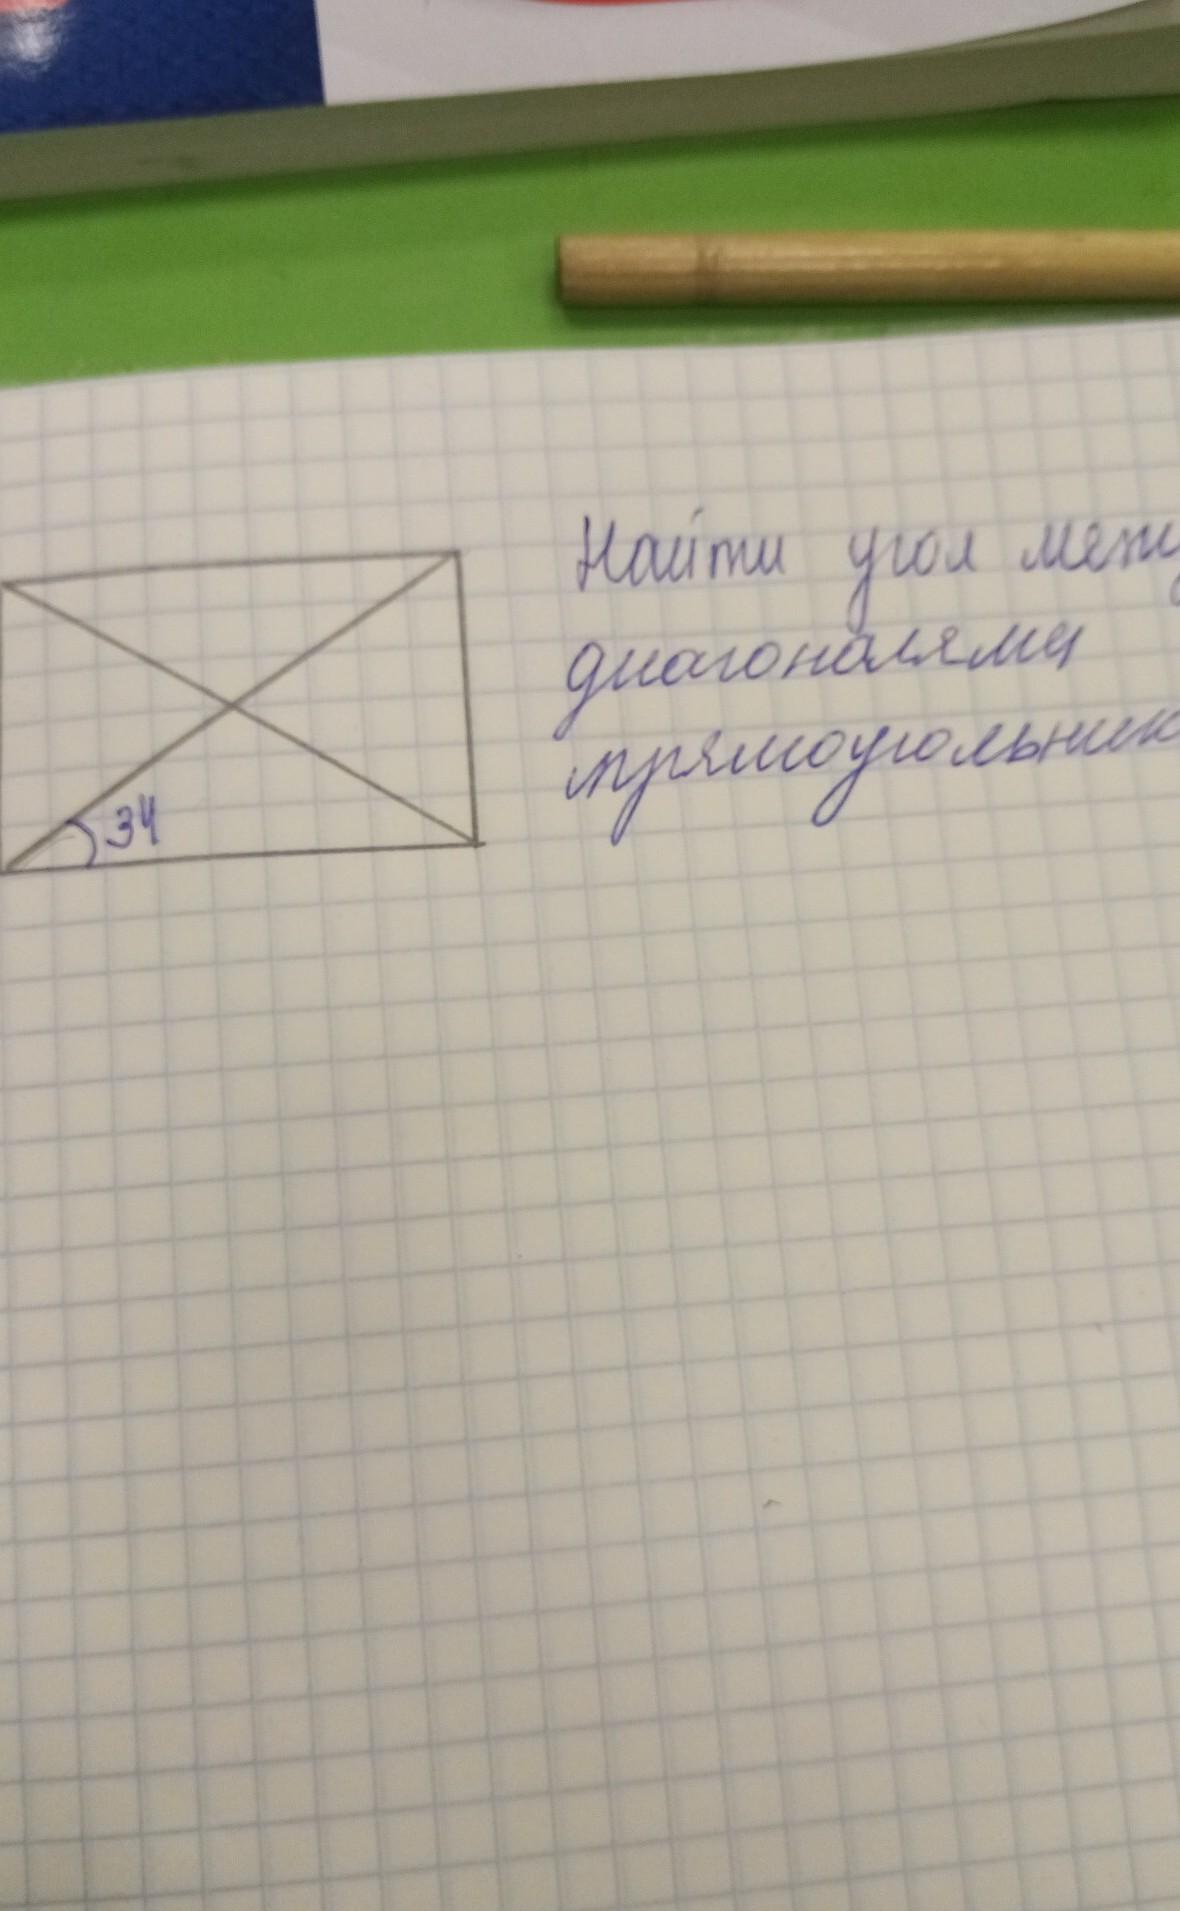 Найти угол меж
диагоналями
прямоугольник
34